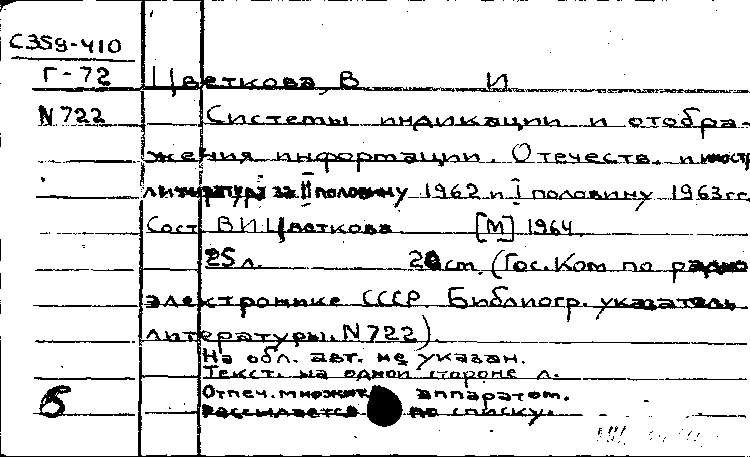 С359-410
Г-72 Цветкова, В И
N722 Системы индикации и отобра-
жения информации. Отечеств. и иностр
литература за II половину 1962 и I половину 1963гг.
Сост В И Цветкова [М] 1964
25 л. 20 ст. (Гос. Ком по радио
электронике СССР. Библиогр. указатель
литературы. N722).
На обл. авт. не указан.
Текст. на одной стороне л.
Отпеч. множит аппаратом.
Б рассылается по списку.